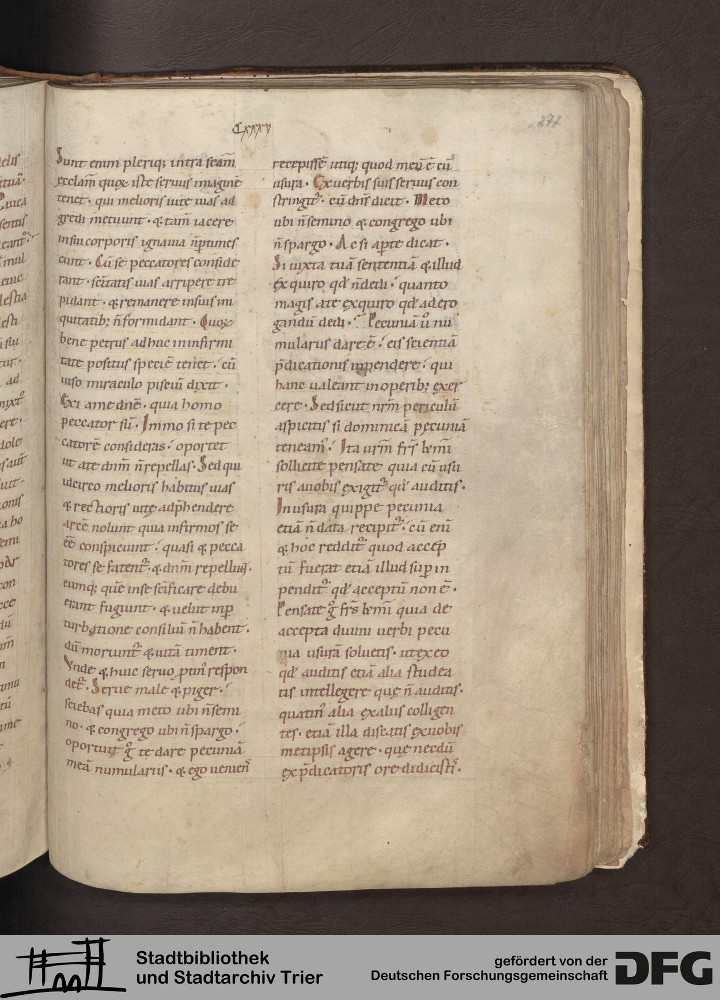 Cxxxv
277
Sunt enim pleriq; intra scam
ecclam quoꝝ iste seruus imaginē
tenet · qui melioris uite uias ad
gredi metuunt · & tam iacere
in sui corporis ignauia ñ ptimes
cunt · Cū se peccatores conside
rant · scitatis uias arripere tre
pidant · & remanere in suis ini
quitatib; ñ formidant · Quoꝝ
bene petrus adhuc in infirmi
tate positus speciē tenet · cū
uiso miraculo pisciū dixit ·
Exi a me dnē · quia homo
peccator sū · Immo si te pec
catorē consideras · oportet
ut a te dnm ñ repellas · Sed qui
idcirco melioris habitus uias
& rectioris uite adphendere
arcē nolunt quia infirmos se
eē conspiciunt · quasi & pecca
tores se fatent᷑ · & dnm repellu(n)t ·
eumq; quē in se scificare debu
erant fugiunt · & uelut in p
turbatione consiliū ñ habent ·
dū moriunt᷑ & uitā timent ·
Vnde & huic seruo ptin᷑ respon
det᷑ · Serue male & piger ·
sciebas quia meto ubi ñ semi
no · & congrego ubi ñ spargo ·
oportuit g te dare pecuniā
meā numulariis · & ego ueniens
recepissē utiq; quod meū ē cū
usura · Ex uerbis suis seruus con
stringit᷑ · cū dns dicit · Meto
ubi ñ semino & congrego ubi
ñ spargo · Ac si apte dicat ·
Si iuxta tuā sententiā & illud
exquiro qd ñ dedi · quanto
magis a te exquiro qd ad ero
gandū dedi · Pecuniā ů nu
mulariis dare ē · eis scientiā
pdicationis inpendere · qui
hanc ualeant in operib; exer
cere · Sed sicut nrm periculū
aspicitis si dominicā pecuniā
teneam᷑ · Ita urm frs kmi
sollicite pensate quia cū usu
ris a uobis exigit᷑ qd auditis ·
In usura quippe pecunia
etiā ñ data recipit᷑ · cū enī
& hoc reddit᷑ quod accep
tū fuerat etiā illud sup in
pendit᷑ qd acceptū non ē ·
Pensate g frs kmi quia de
accepta diuini uerbi pecu
nia usurā soluetis · ut ex eo
qd auditis etiā alia studea
tis intellegere que ñ auditis ·
quatin᷑ alia ex aliis colligen
tes · etiā illa discatis ex uobis
metipsis agere · que necdū
ex pdicatoris ore didicistis ·
Stadtbibliothek
und Stadtarchiv Trier
gefördert von der
Deutschen Forschungsgemeinschaft
DFG